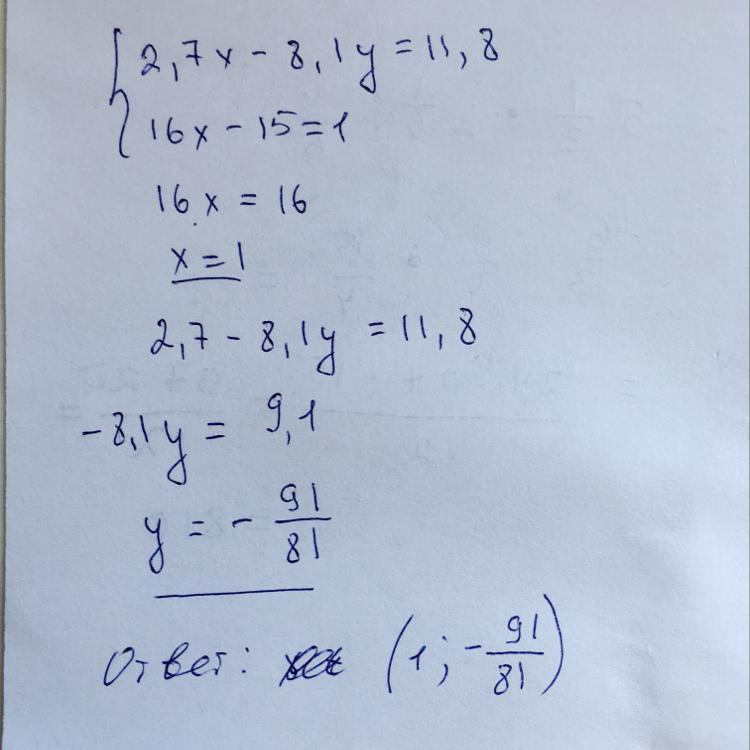 2,7x - 8,1y = 11,8
16x - 15 = 1
16x = 16
x = 1
2,7 - 8,1y = 11,8
-8,1y = 9,1
y = - 91/81
Ответ: (1; - 91/81)